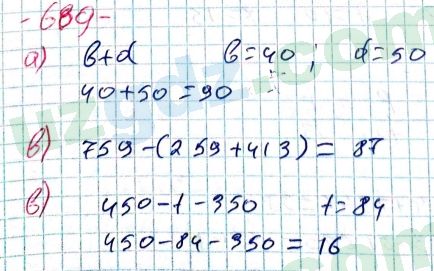 -689-
а) b+d b=40; d=50
40+50=90
в) 759-(259+413)= 87
в) 450-t-350 t=84
450-84-350=16